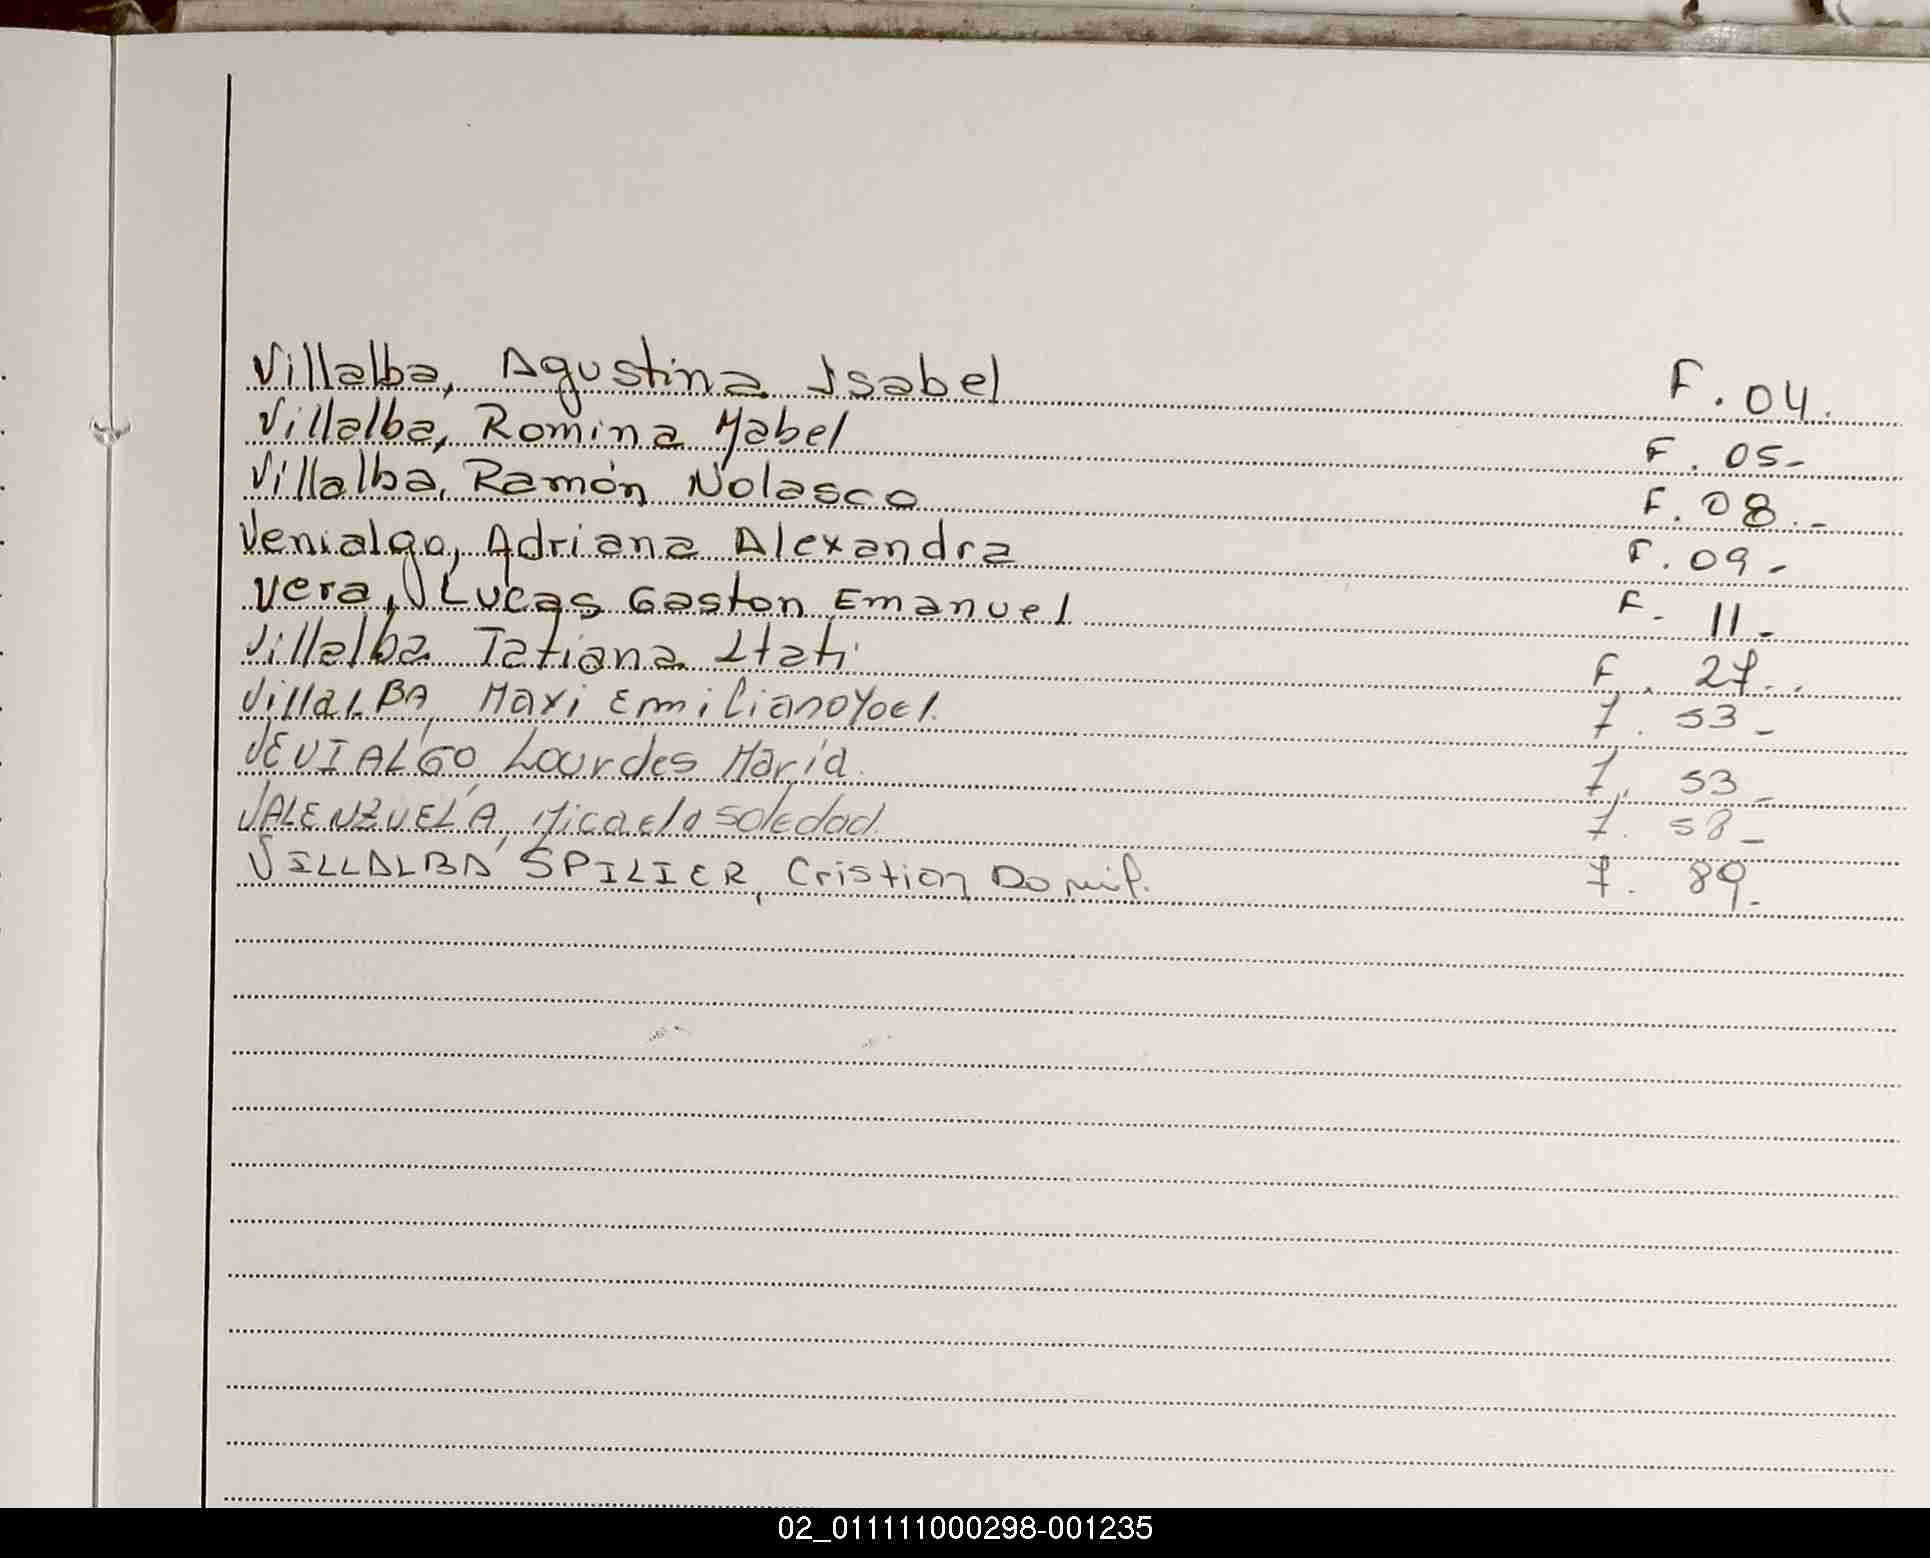 Villalba, Agustina Isabel F. 04.
Villalba, Romina Mabel F. 05-
Villalba, Ramón Nolasco F. 08.-
Venialgo, Adriana Alexandra F. 09-
Vera, Lucas Gaston Emanuel F. 11-
Villalba Tatiana Itati F. 27..
VillaLBA, Maxi Emiliano Yoel. F. 53-
VENIALGO, Lourdes María. F. 53-
VALENZUELA, Micaela soledad. F. 58-
VILLALBA SPILIER, Cristian F. 89-
02_011111000298-001235